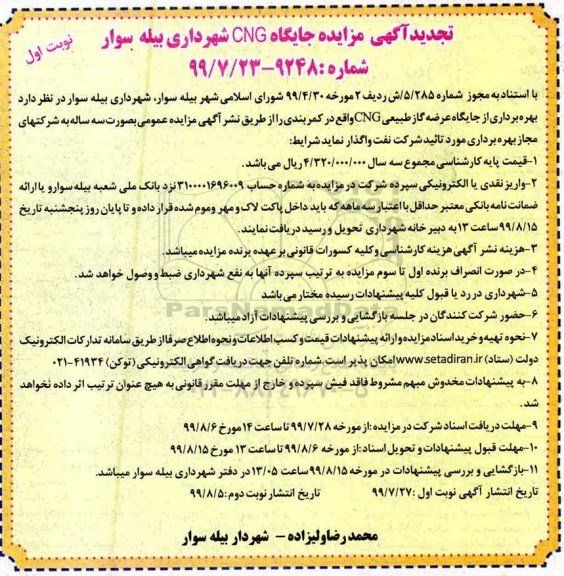 تجدیدآگهی مزایده جایگاه CNG شهرداری بیله سوار
نوبت اول
شماره :۹۲۴۸-۹۹/۷/۲۳
با استناد به مجوز شماره ۵/۲۸۵/ش ردیف ۲ مورخه ۹۹/۴/۳۰ شورای اسلامی شهر بیله سوار، شهرداری بیله سوار در نظر دارد
بهره برداری از جایگاه عرضه گاز طبیعی CNG واقع در کمربندی را از طریق نشر آگهی مزایده عمومی بصورت سه ساله به شرکتهای
مجاز بهره برداری مورد تائید شرکت نفت واگذار نماید شرایط:
۱-قیمت پایه کارشناسی مجموع سه سال ۴/۳۲۰/۰۰۰/۰۰۰ ریال می باشد.
۲-واریز نقدی یا الکترونیکی سپرده شرکت در مزایده به شماره حساب ۳۱۰۰۰۰۱۶۹۶۰۰۹ نزد بانک ملی شعبه بیله سوار و یا ارائه
ضمانت نامه بانکی معتبر حداقل با اعتبار سه ماهه که باید داخل پاکت لاک و مهر و موم شده قرار داده و تا پایان روز پنجشنبه تاریخ
۹۹/۸/۱۵ ساعت ۱۳ به دبیر خانه شهرداری تحویل و رسید دریافت نمایند.
۳-هزینه نشر آگهی هزینه کارشناسی و کلیه کسورات قانونی بر عهده برنده مزایده میباشد.
۴-در صورت انصراف برنده اول تا سوم مزایده به ترتیب سپرده آنها به نفع شهرداری ضبط و وصول خواهد شد.
۵-شهرداری در رد یا قبول کلیه پیشنهادات رسیده مختار می باشد
۶-حضور شرکت کنندگان در جلسه بازگشایی و بررسی پیشنهادات آزاد میباشد.
۷-نحوه تهیه و خرید اسناد مزایده و ارائه پیشنهادات قیمت و کسب اطلاعات و نحوه اطلاع صرفا از طریق سامانه تدارکات الکترونیک
دولت (ستاد) www.setadiran.ir امکان پذیر است. شماره تلفن جهت دریافت گواهی الکترونیکی (توکن) ۴۱۹۳۴-۰۲۱
۸-به پیشنهادات مخدوش مبهم مشروط فاقد فیش سپرده و خارج از مهلت مقرر قانونی به هیچ عنوان ترتیب اثر داده نخواهد
شد.
۹-مهلت دریافت اسناد شرکت در مزایده :از مورخه ۹۹/۷/۲۸ تا ساعت ۱۴ مورخ ۹۹/۸/۶
۱۰-مهلت قبول پیشنهادات و تحویل اسناد :از مورخه ۹۹/۸/۶ تا ساعت ۱۳ مورخ ۹۹/۸/۱۵
۱۱-بازگشایی و بررسی پیشنهادات در مورخه ۹۹/۸/۱۵ ساعت ۱۳/۰۵ در دفتر شهرداری بیله سوار میباشد.
تاریخ انتشار آگهی نوبت اول :۹۹/۷/۲۷ تاریخ انتشار نوبت دوم :۹۹/۸/۵
محمدرضا ولیزاده - شهردار بیله سوار
ParsNamadData